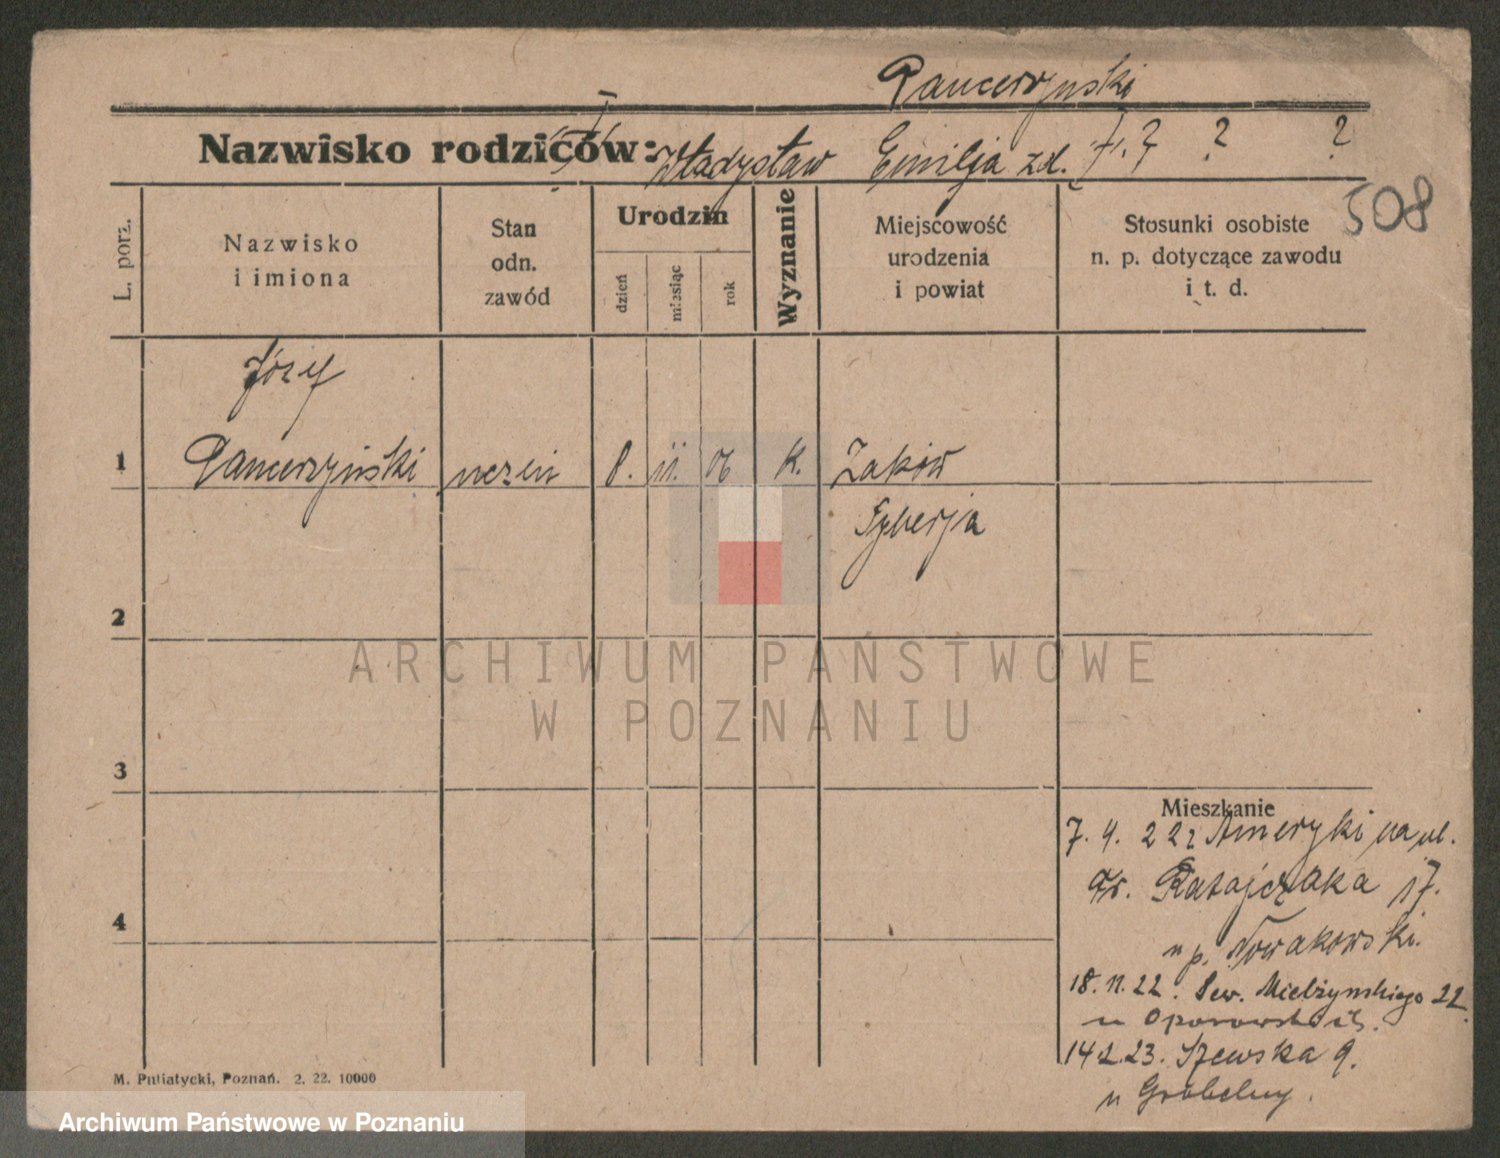 Pancerzyński
Nazwisko rodziców: Władysław Emilja zd. ? ? ?
508
L. porz.
Nazwisko
i imiona
Stan
odn.
zawód
Urodzin
dzień
miesiąc
rok
Wyznanie
Miejscowość
urodzenia
i powiat
Stosunki osobiste
n. p. dotyczące zawodu
i t. d.
Józef
1 Pancerzyński uczeń 8. III. 06 K. Żaków
Syberja
2
3
4
Mieszkanie
7. 4. 22 z Ameryki na ul.
Fr. Ratajczaka 17.
u p. Nowakowski.
18. 11. 22. Sew. Mielżyńskiego 22.
u
14.2.23. Szewska 9.
u Grobelny.
M. Putiatycki, Poznań. 2. 22. 10000
ARCHIWUM PAŃSTWOWE
W POZNANIU
Archiwum Państwowe w Poznaniu